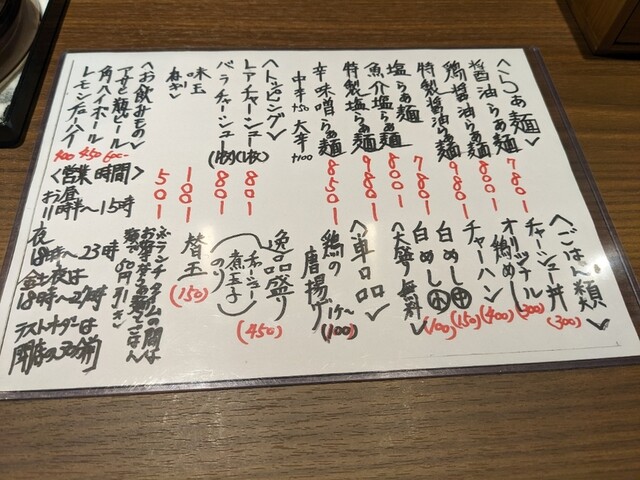 〈らぁ麺〉
醤油らぁ麺 780-
鶏醤油らぁ麺 880-
特製醤油らぁ麺 980-
塩らぁ麺 780-
魚介塩らぁ麺 880-
特製塩らぁ麺 980-
辛味噌らぁ麺 850-
中辛+50 大辛+100
〈トッピング〉
レアチャーシュー(1枚) 80-
バラチャーシュー(1枚) 80-
味玉 100-
50-
〈お飲みもの〉
アサヒ瓶ビール 600-
角ハイボール 450
レモンチューハイ 400
〈ごはん類〉
チャーシュー丼 (300)
オリジナル鶏めし (300)
チャーハン (400)
白めし 中 (150)
白めし 小 (100)
〈大盛り無料〉
〈単品〉
鶏の唐揚げ 1ケ〜(100)
逸品盛り
(チャーシュー 煮玉子 のり) (450)
替玉 (150)
※ランチタイムの間は
お好きならぁ麺とごはん
類で50円引き
〈営業時間〉
お昼
11時半〜15時
夜
18時〜23時
金土夜は
18時〜27時
ラストオーダーは
閉店の30分前